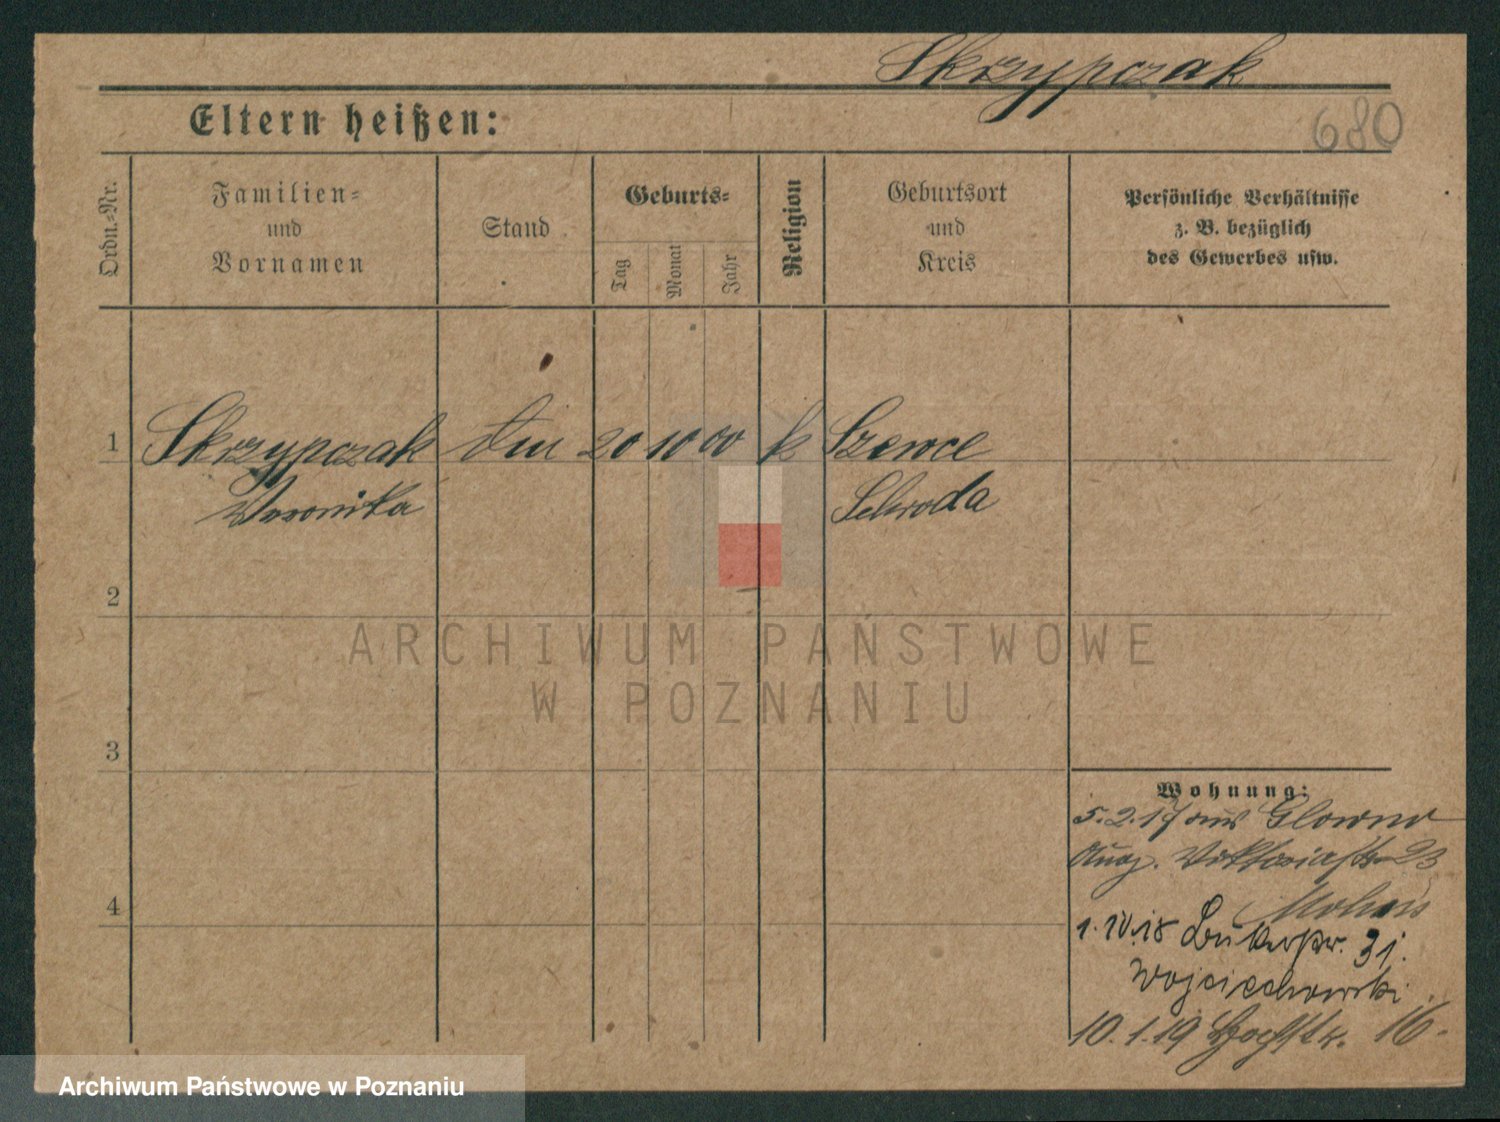 Skrzypczak
680
Eltern heißen:
Ordn.-Nr.
Familien-
und
Vornamen
Stand
Geburts-
Tag
Monat
Jahr
Religion
Geburtsort
und
Kreis
Persönliche Verhältnisse
z. B. bezüglich
des Gewerbes usw.
1 Skrzypczak 20 10 00 k Szewce
Veronika Schroda
2
ARCHIWUM PAŃSTWOWE
W POZNANIU
3
Wohnung:
5.2.17 aus Glowno
Aug. Viktoriastr 23
4
1. IV. 18 31.
Wojciechowski
10.1.19 16.
Archiwum Państwowe w Poznaniu